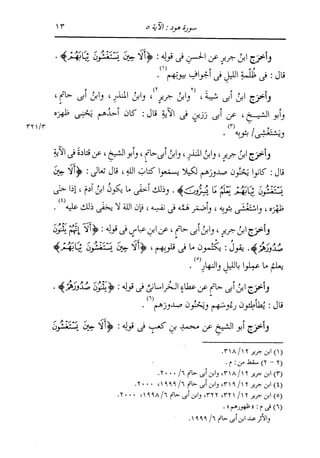 سورة هود : الآية ٥
١٣
وأخرَج ابنُ جريرٍ عن الحسنِ فى قولِه : ﴿أَلَا حِينَ يَسْتَغْشُونَ ثِيَابَهُمْ﴾ .
قال : فى ظُلْمةِ الليلِ فى أجوافِ بيوتِهم(١) .
وأخرَج ابنُ أبى شيبةَ ، (٢وابنُ جريرٍ٢) ، وابنُ المنذرِ ، وابنُ أبى حاتمٍ ،
وأبو الشيخِ ، عن أبى رَزينٍ فى الآيةِ قال : كان أحدُهم يَحْنِى ظهرَه
ويَستَغْشِى/ بثوبِه(٣) .
٣٢١/٣
وأخرَج ابنُ جريرٍ ، وابنُ المنذرِ ، وابنُ أبى حاتمٍ ، وأبو الشيخِ ، عن قتادةَ فى الآيةِ
قال : كانوا يَحْنُون صدورَهم لكيلا يسمَعوا كتابَ اللهِ ، قال تعالى : ﴿أَلَا حِينَ
يَسْتَغْشُونَ ثِيَابَهُمْ يَعْلَمُ مَا يُسِرُّونَ﴾ . وذلك أخفَى ما يكونُ ابنُ آدمَ ، إذا حنَى
ظهْرَه ، واستَغْشَى بثوبِه ، وأضمَر همَّه فى نفسِه ، فإن اللهَ لا يخفَى ذلك عليه(٤) .
وأخرَج ابنُ جريرٍ ، وابنُ أبى حاتمٍ ، عن ابنِ عباسٍ فى قولِه : ﴿أَلَا إِنَّهُمْ يَثْنُونَ
صُدُورَهُمْ﴾ . يقولُ : يكتُمون ما فى قلوبِهم ، ﴿أَلَا حِينَ يَسْتَغْشُونَ ثِيَابَهُمْ﴾
يعلَمُ ما عمِلوا بالليلِ والنهارِ(٥) .
وأخرَج ابنُ أبى حاتمٍ عن عطاءٍ الخُراسانىِّ فى قولِه : ﴿يَثْنُونَ صُدُورَهُمْ﴾ .
قال : يُطأطِئون رءُوسَهم ويَحْنُون صدورَهم(٦) .
وأخرَج أبو الشيخِ عن محمدِ بنِ كعبٍ فى قولِه : ﴿أَلَا حِينَ يَسْتَغْشُونَ
(١) ابن جرير ٣١٨/١٢ .
(٢ - ٢) سقط من : م .
(٣) ابن جرير ٣١٨/١٢ ، وابن أبى حاتم ٢٠٠٠/٦ .
(٤) ابن جرير ٣١٩/١٢ ، وابن أبى حاتم ١٩٩٩/٦ ، ٢٠٠٠ .
(٥) ابن جرير ٣٢١/١٢ ، ٣٢٢ ، وابن أبى حاتم ١٩٩٨/٦ ، ٢٠٠٠ .
(٦) فى م : « ظهورهم » .
والأثر عند ابن أبى حاتم ١٩٩٩/٦ .